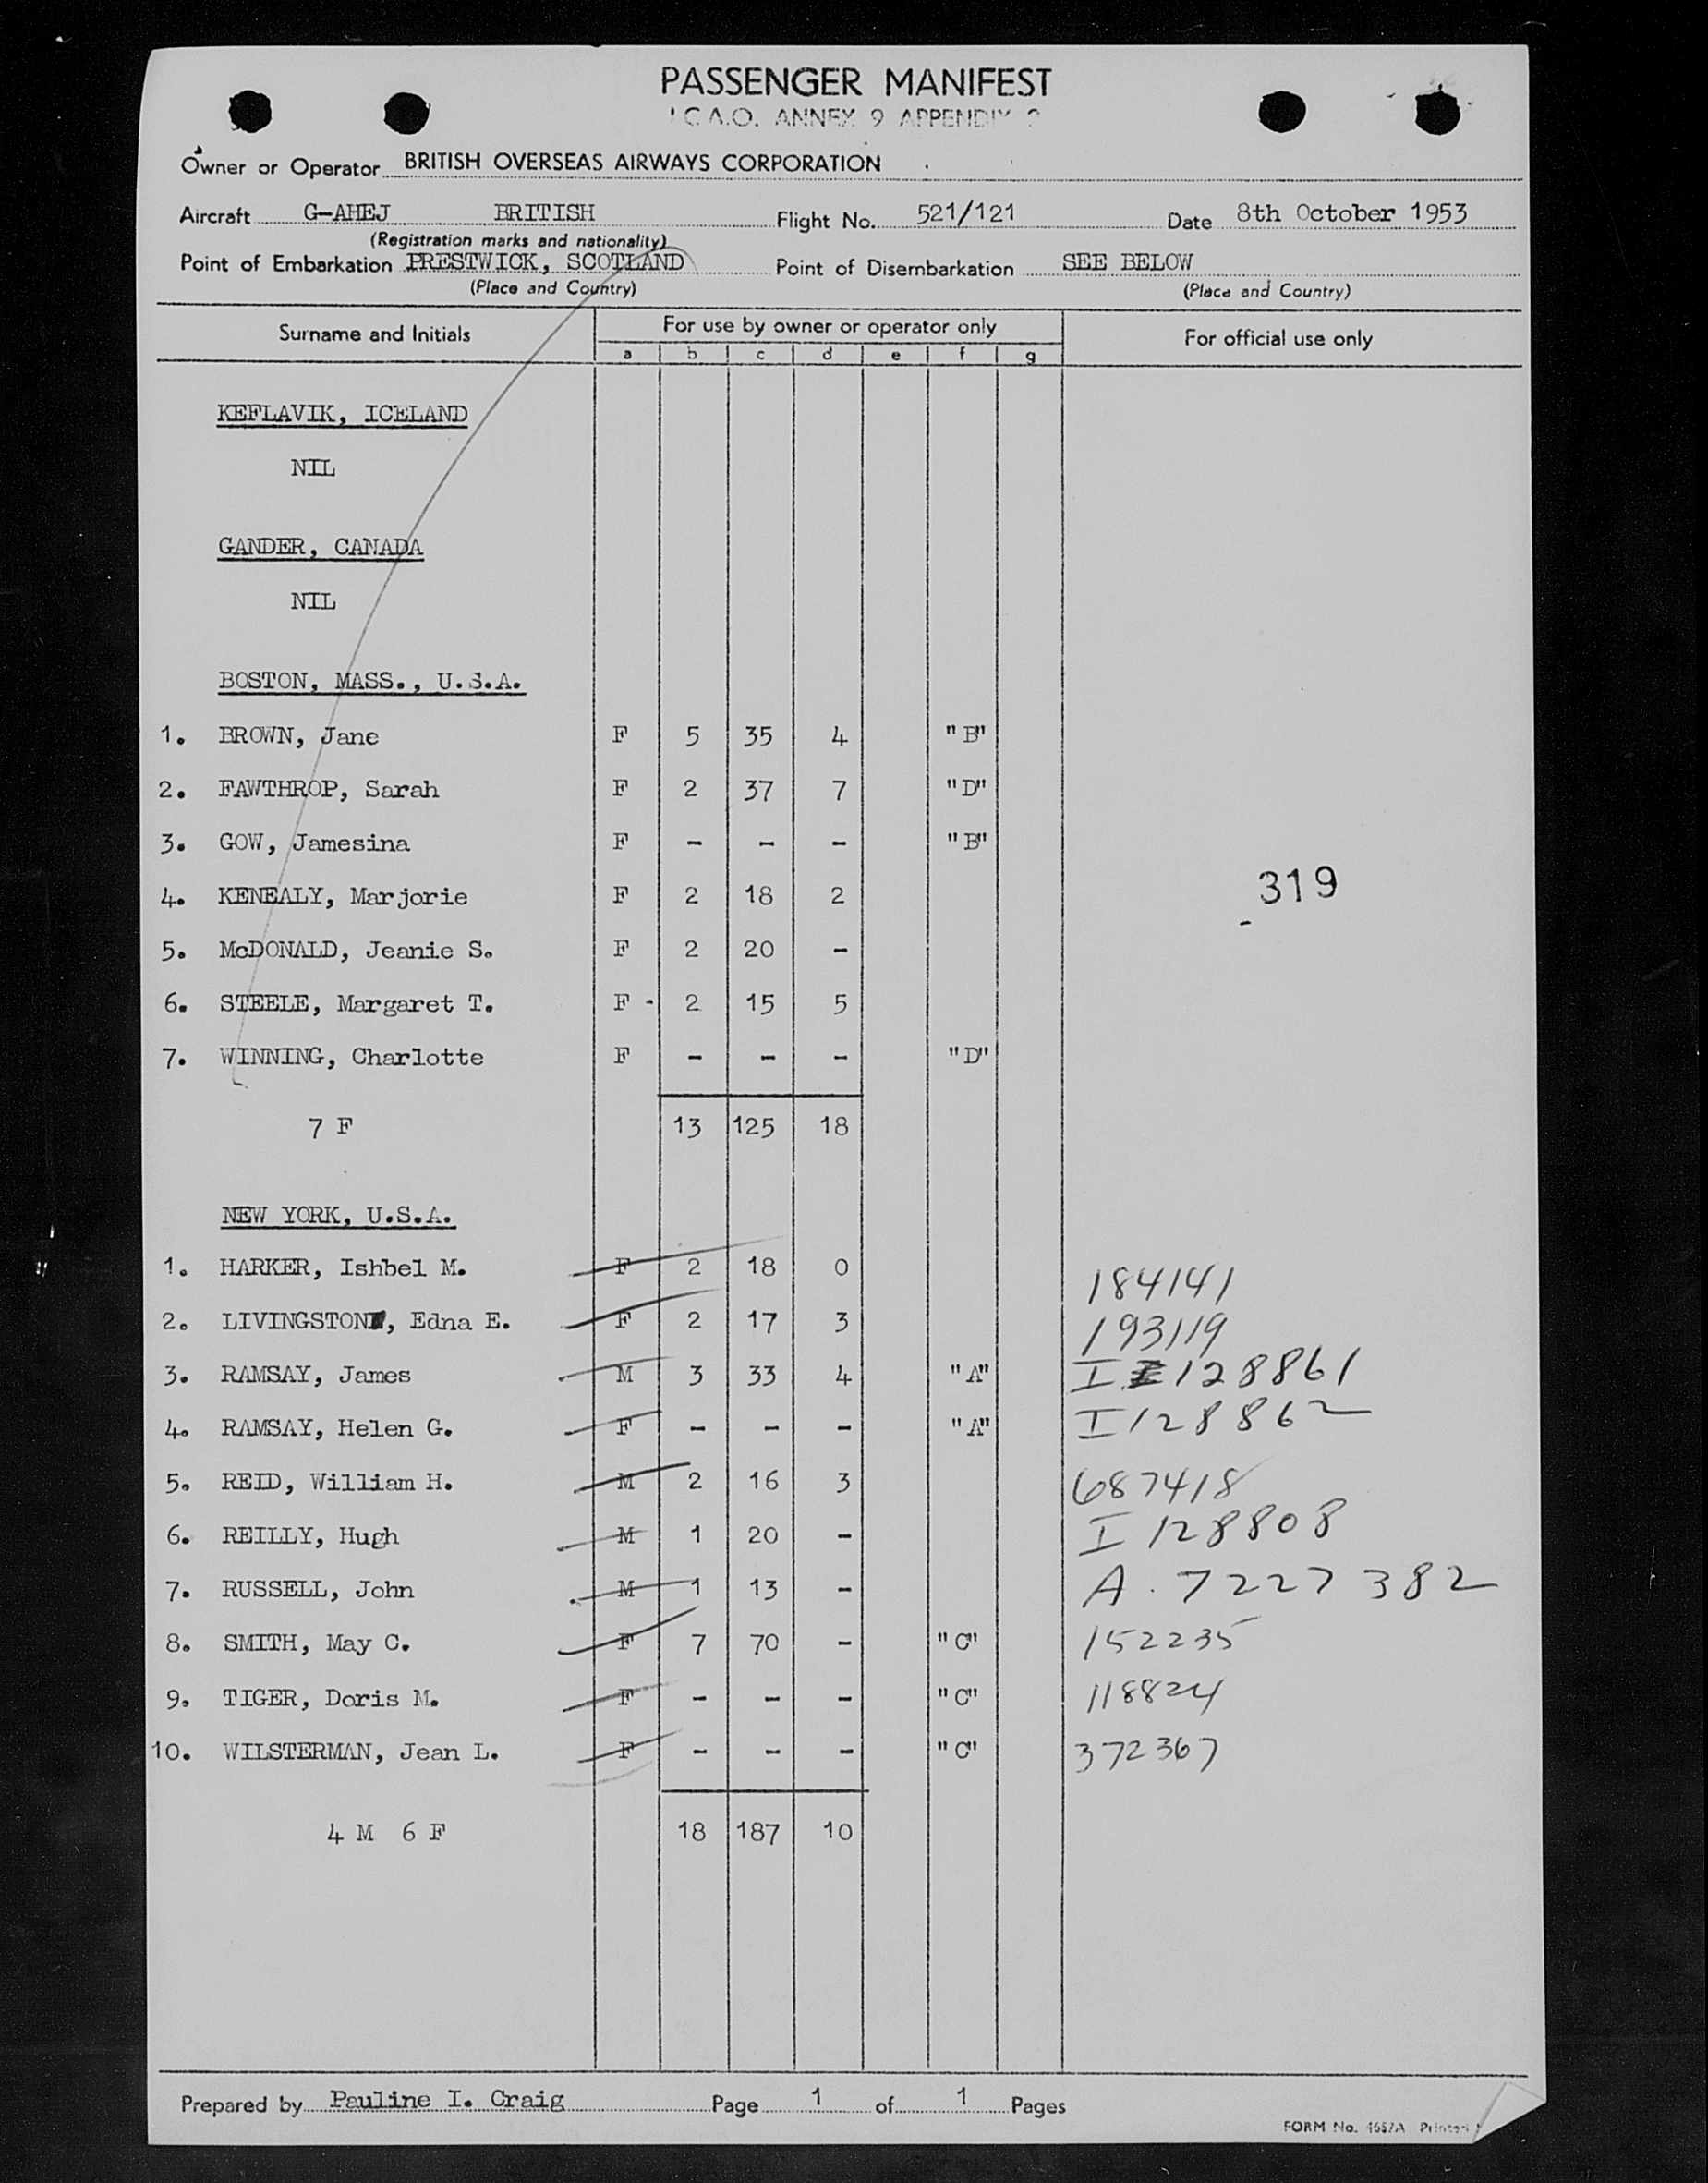 PASSENGER MANIFEST
I.C.A.O. ANNEX 9 APPENDIX
Owner or Operator BRITISH OVERSEAS AIRWAYS CORPORATION
Aircraft G-AHEJ BRITISH Flight No. 521/121 Date 8th October 1953
(Registration marks and nationality)
Point of Embarkation PRESTWICK, SCOTLAND Point of Disembarkation SEE BELOW
(Place and Country) (Place and Country)
Surname and Initials For use by owner or operator only For official use only
a b c d e f g
KEFLAVIK, ICELAND
NIL
GANDER, CANADA
NIL
BOSTON, MASS., U.S.A.
1. BROWN, Jane F 5 35 4 "B"
2. FAWTHROP, Sarah F 2 37 7 "D"
3. GOW, Jamesina F - - - "B"
319
4. KENEALY, Marjorie F 2 18 2
5. McDONALD, Jeanie S. F 2 20 -
6. STEELE, Margaret T. F - 2 15 5
7. WINNING, Charlotte F - - - "D"
7 F 13 125 18
NEW YORK, U.S.A.
1. HARKER, Ishbel M. F 2 18 0 184141
2. LIVINGSTON, Edna E. F 2 17 3 193119
3. RAMSAY, James M 3 33 4 "A" I 128861
4. RAMSAY, Helen G. F - - - "A" I 128862
5. REID, William H. M 2 16 3 687418
6. REILLY, Hugh M 1 20 - I 128808
7. RUSSELL, John M 1 13 - A. 7227382
8. SMITH, May C. F 7 70 - "C" 152235
9. TIGER, Doris M. F - - - "C" 118824
10. WILSTERMAN, Jean L. F - - - "C" 372367
4 M 6 F 18 187 10
Prepared by Pauline I. Craig Page 1 of 1 Pages
FORM No. 4657A Printed